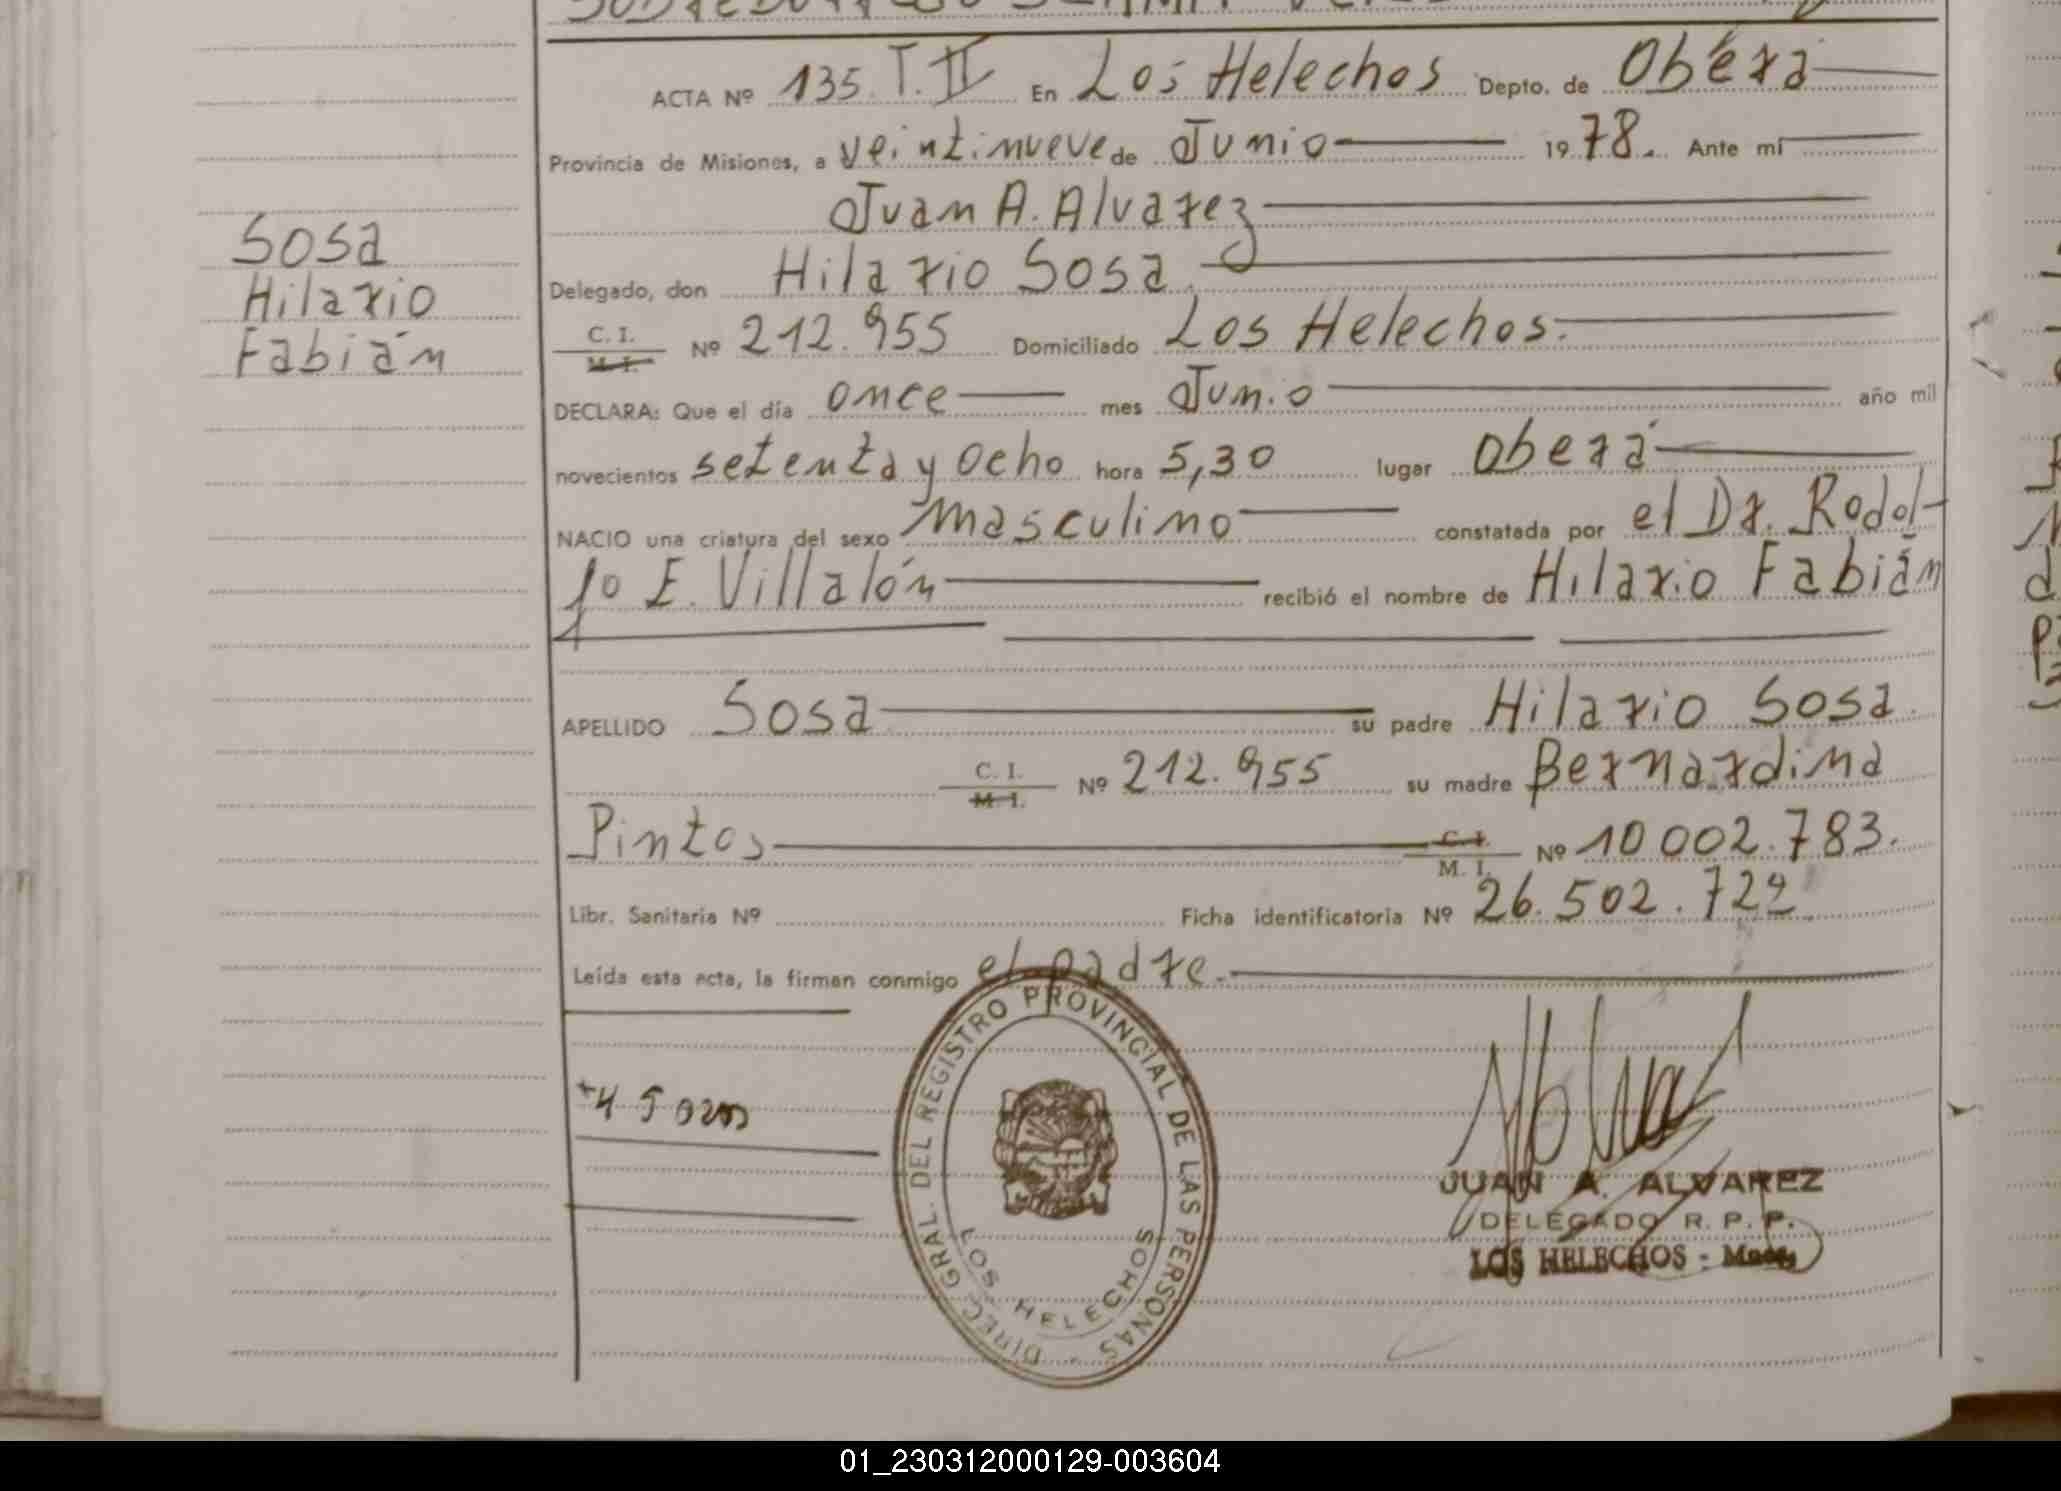 ACTA Nº 135. T. II En Los Helechos Depto. de Oberá
Provincia de Misiones, a veintinueve de Junio 1978. Ante mí
Juan A. Alvarez
Sosa
Hilario
Fabián
Delegado, don Hilario Sosa
C. I. M. I. Nº 212.955 Domiciliado Los Helechos.
DECLARA: Que el día once mes Junio año mil
novecientos setenta y Ocho hora 5,30 lugar Oberá
NACIO una criatura del sexo masculino constatada por el Dr. Rodol-
fo E. Villalón recibió el nombre de Hilario Fabián
APELLIDO Sosa su padre Hilario Sosa.
C. I. M. I. Nº 212.955 su madre Bernardina
Pintos C. I. M. I. Nº 10 002.783.
Libr. Sanitaria Nº Ficha identificatoria Nº 26.502.722
Leída esta acta, la firman conmigo el padre.
DIREC. GRAL. DEL REGISTRO PROVINCIAL DE LAS PERSONAS
LOS HELECHOS
JUAN A. ALVAREZ
DELEGADO R. P. P.
LOS HELECHOS - Mnes.
01_230312000129-003604